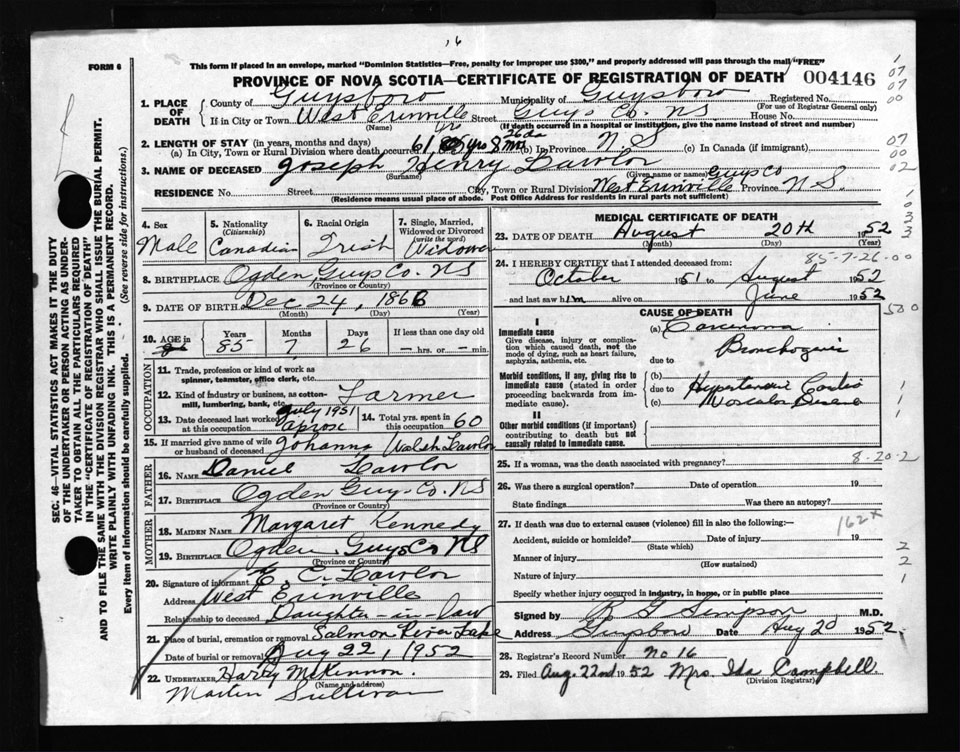 16
FORM 6
This form if placed in an envelope, marked "Dominion Statistics—Free, penalty for improper use $300," and properly addressed will pass through the mail "FREE"
PROVINCE OF NOVA SCOTIA—CERTIFICATE OF REGISTRATION OF DEATH 004146
1. PLACE OF DEATH { County of Guysboro Municipality of Guysboro Registered No.
(For use of Registrar General only)
If in City or Town West Erinville Street Guys Co. NS House No.
(Name) (If death occurred in a hospital or institution, give the name instead of street and number)
2. LENGTH OF STAY (in years, months and days)
(a) In City, Town or Rural Division where death occurred 61 yrs 8 mos 26 da (b) In Province N S (c) In Canada (if immigrant)
3. NAME OF DECEASED Joseph Henry Lawlor
(Surname) (Given name or names)
RESIDENCE No. Street City, Town or Rural Division West Erinville Guys Co Province N S.
(Residence means usual place of abode. Post Office Address for residents in rural parts not sufficient)
4. Sex Male
5. Nationality (Citizenship) Canadian
6. Racial Origin Irish
7. Single, Married, Widowed or Divorced (write the word) Widower
8. BIRTHPLACE Ogden, Guys Co. NS
(Province or County)
9. DATE OF BIRTH Dec 24, 1866
(Month) (Day) (Year)
10. AGE in Years 85 Months 7 Days 26 If less than one day old — hrs. or — min.
OCCUPATION
11. Trade, profession or kind of work as spinner, teamster, office clerk, etc.
12. Kind of industry or business, as cotton-mill, lumbering, bank, etc. Farmer
13. Date deceased last worked at this occupation July 1951 aprox 14. Total yrs. spent in this occupation 60
15. If married give name of wife or husband of deceased Johanna Walsh Lawlor
FATHER
16. NAME Daniel Lawlor
17. BIRTHPLACE Ogden Guys. Co. NS
(Province or County)
MOTHER
18. MAIDEN NAME Margaret Kennedy
19. BIRTHPLACE Ogden, Guys Co NS
(Province or Country)
20. Signature of informant E. C. Lawlor
Address West Erinville
Relationship to deceased Daughter-in-law
21. Place of burial, cremation or removal Salmon River Lake
Date of burial or removal Aug 22, 1952
22. UNDERTAKER Harty McKinnon
(Name and address)
Martin Sullivan
MEDICAL CERTIFICATE OF DEATH
23. DATE OF DEATH August 20th 1952
(Month) (Day) (Year)
85-7-26-00
24. I HEREBY CERTIFY that I attended deceased from:
October 1951 to August 1952
and last saw him alive on June 1952
CAUSE OF DEATH
I
Immediate cause (a) Carcinoma
Give disease, injury or complication which caused death, not the mode of dying, such as heart failure, asphyxia, asthenia, etc.
Bronchogenic
due to
Morbid conditions, if any, giving rise to immediate cause (stated in order proceeding backwards from immediate cause).
(b)
due to Hypertensive Cardio
(c) Vascular Disease
II
Other morbid conditions (if important) contributing to death but not causally related to immediate cause.
25. If a woman, was the death associated with pregnancy? 8-20-2
26. Was there a surgical operation? Date of operation 19
State findings Was there an autopsy?
27. If death was due to external causes (violence) fill in also the following:— 162x
Accident, suicide or homicide? Date of injury 19
(State which)
Manner of injury
(How sustained)
Nature of injury
Specify whether injury occurred in industry, in home, or in public place
Signed by B G Simpson M.D.
Address Guysboro Date Aug 20 1952.
28. Registrar's Record Number No 16
29. Filed Aug. 22nd 1952 Mrs. Ida Campbell.
(Division Registrar)
SEC. 46—VITAL STATISTICS ACT MAKES IT THE DUTY
OF THE UNDERTAKER OR PERSON ACTING AS UNDER-
TAKER TO OBTAIN ALL THE PARTICULARS REQUIRED
IN THE "CERTIFICATE OF REGISTRATION OF DEATH"
AND TO FILE THE SAME WITH THE DIVISION REGISTRAR WHO SHALL ISSUE THE BURIAL PERMIT.
WRITE PLAINLY WITH UNFADING INK. THIS IS A PERMANENT RECORD.
Every item of information should be carefully supplied. (See reverse side for instructions.)